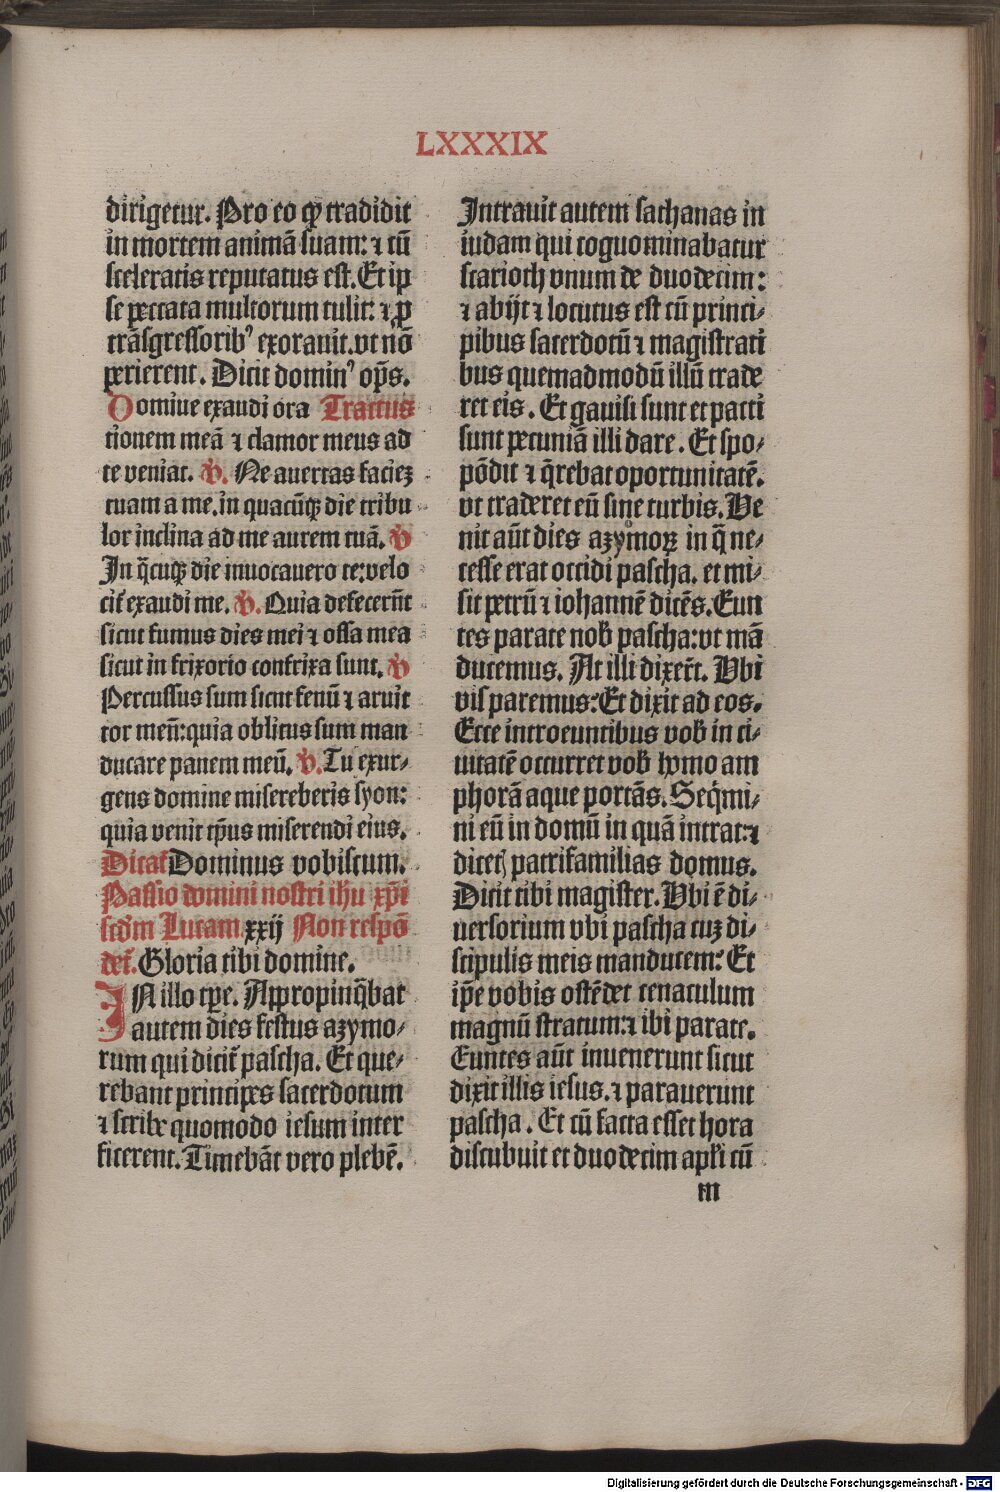 LXXXIX
dirigetur. Pro eo ꝙ tradidit
in mortem animā suam: ⁊ cū
sceleratis reputatus est. Et ip
se peccata multorum tulit: ⁊ ꝓ
trāsgressoribꝰ exorauit. vt nō
perierent. Dicit dominꝰ op̄s.
Domiue exaudi ora Tractus
tionem meā ⁊ clamor meus ad
te veniat. ℣. Ne auertas faciez
tuam a me. in quacūqꝫ die tribu
lor inclina ad me aurem tuā. ℣
In q̄cuqꝫ die inuocauero te: velo
cit̄ exaudi me. ℣. Quia defecerūt
sicut fumus dies mei ⁊ ossa mea
sicut in frixorio confrixa sunt. ℣
Percussus sum sicut fenū ⁊ aruit
cor meū: quia oblitus sum man
ducare panem meū. ℣. Tu exur⸗
gens domine misereberis syon:
quia venit tp̄us miserendi eius.
Dicat̄ Dominus vobiscum.
Passio domini nostri ihu xp̄i
scd̄m Lucam. xxij Non respō
det̄. Gloria tibi domine.
IN illo tp̄e. Appropinq̄bat
autem dies festus azymo⸗
rum qui dicit̄ pascha. Et que⸗
rebant principes sacerdotum
⁊ scribe quomodo iesum inter
ficerent. Timebāt vero plebē.
Intrauit autem sathanas in
iudam qui coguominabatur
scarioth vnum de duodecim:
⁊ abijt ⁊ locutus est cū princi⸗
pibus sacerdotū ⁊ magistrati
bus quemadmodū illū trade
ret eis. Et gauisi sunt et pacti
sunt pecuniā illi dare. Et spo⸗
pōdit ⁊ q̄rebat oportunitatē.
vt traderet eū sine turbis. Ve
nit aūt dies azymoꝝ in q̄ ne⸗
cesse erat occidi pascha. et mi⸗
sit petrū ⁊ iohannē dicēs. Eun
tes parate nob̄ pascha: vt mā
ducemus. At illi dixer̄t. Vbi
vis paremus? Et dixit ad eos.
Ecce introeuntibus vob̄ in ci⸗
uitatē occurret vob̄ homo am
phorā aque portās. Seq̄mi⸗
ni eū in domū in quā intrat: ⁊
dicetꝭ patrifamilias domus.
Dicit tibi magister. Vbi ē di⸗
uersorium vbi pascha cuz di⸗
scipulis meis manducem? Et
ip̄e vobis ostēdet cenaculum
magnū stratum: ⁊ ibi parate.
Euntes aūt inuenerunt sicut
dixit illis iesus. ⁊ parauerunt
pascha. Et cū facta esset hora
discubuit et duodecim apl̄i cū
m
Digitalisierung gefördert durch die Deutsche Forschungsgemeinschaft - DFG